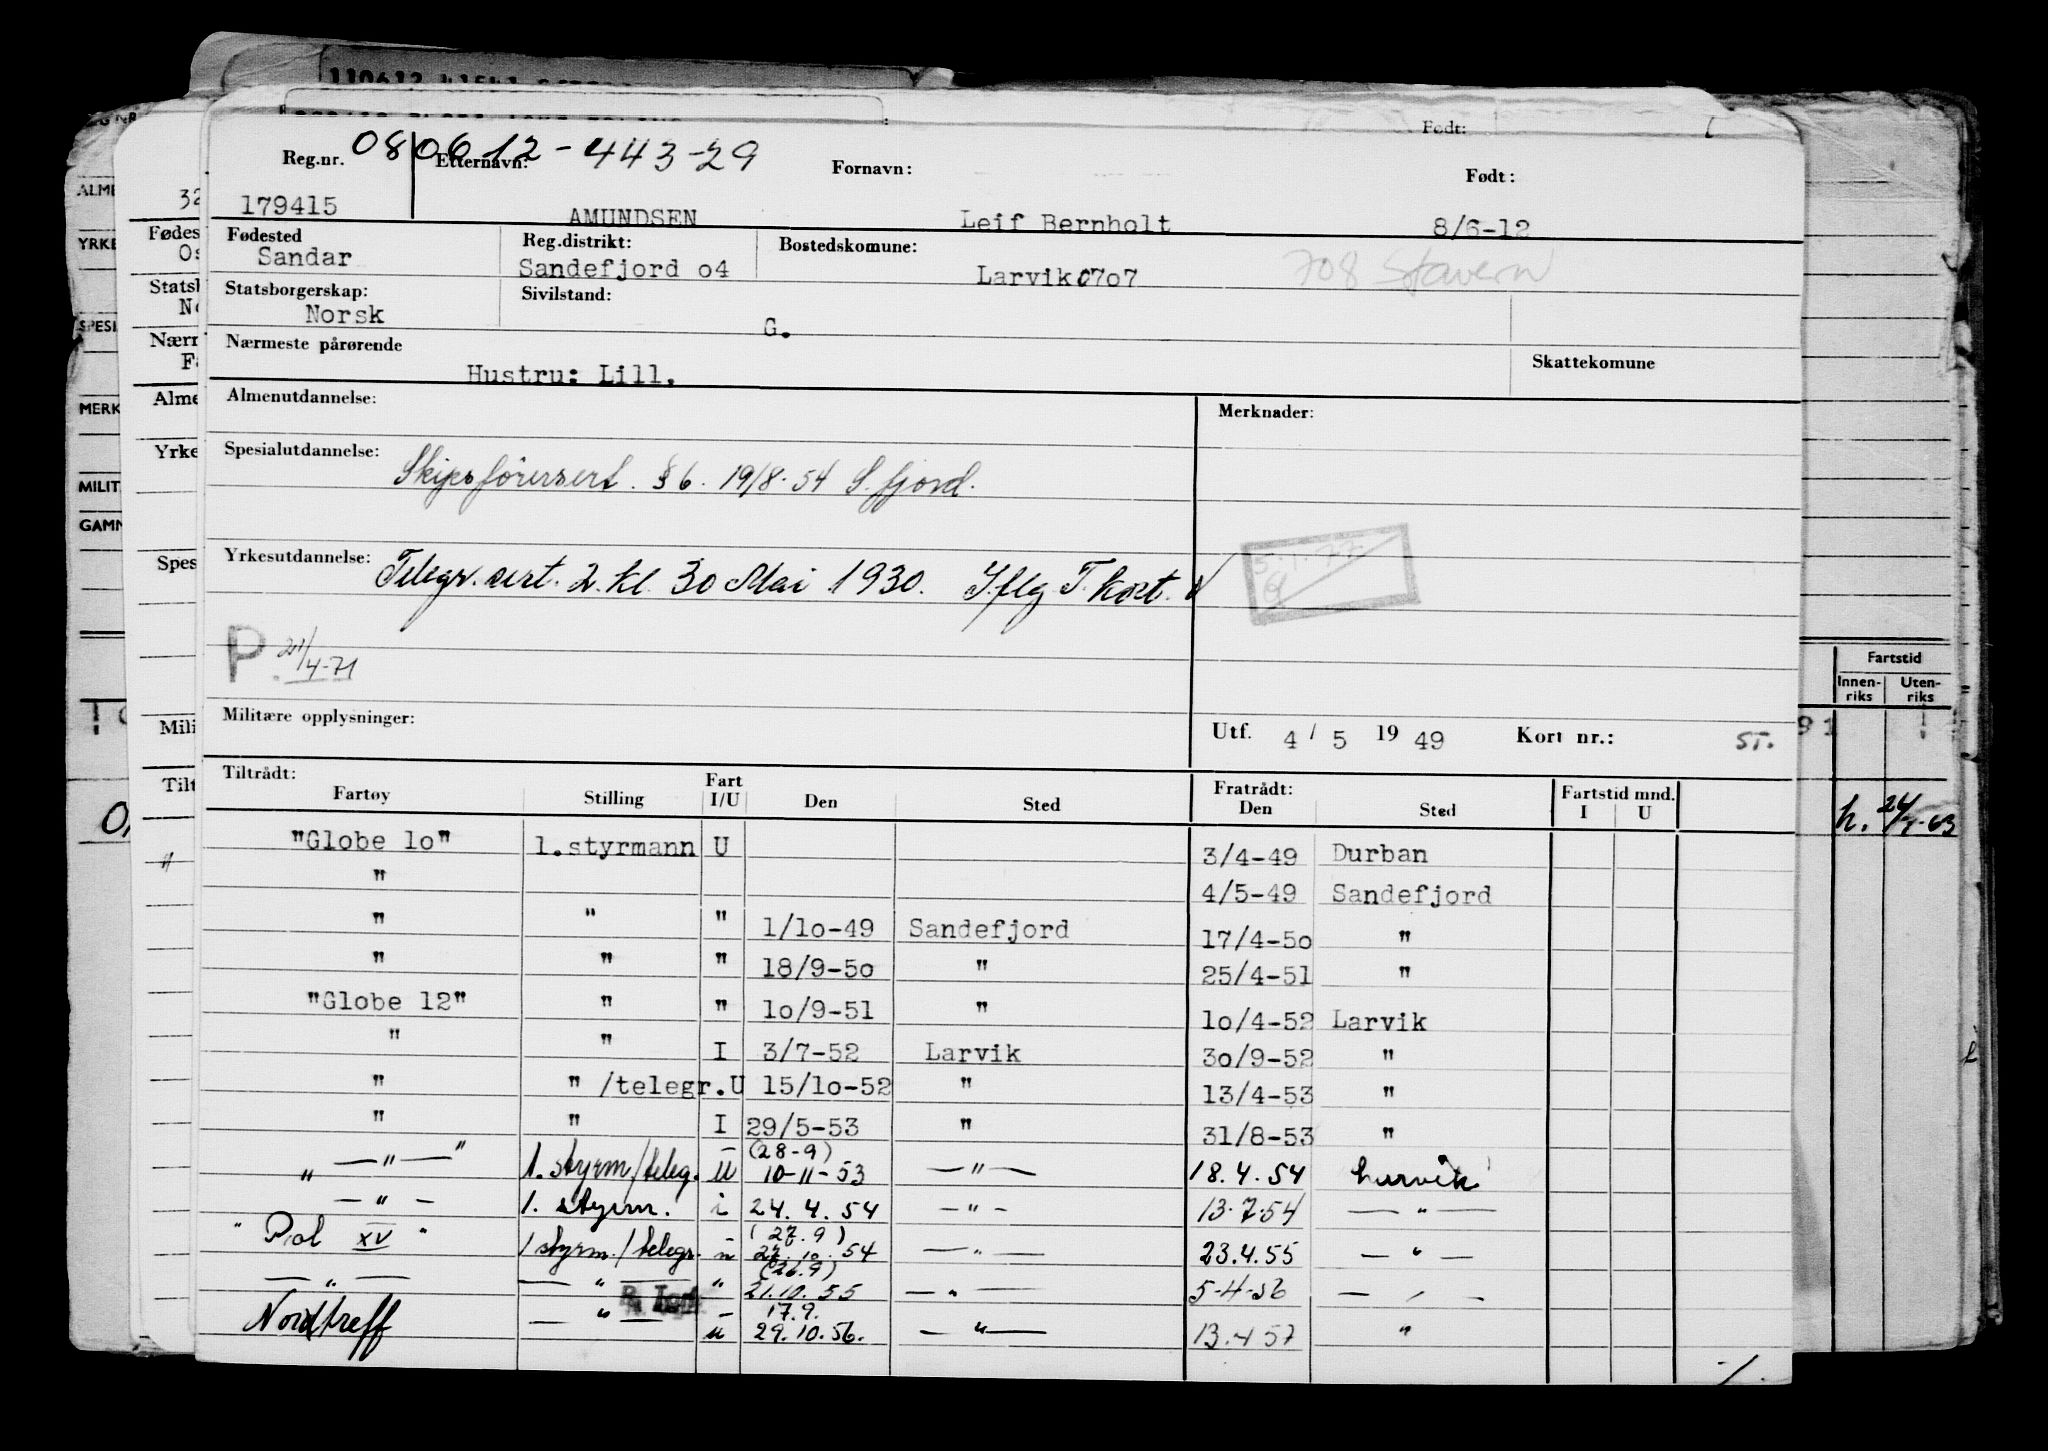 Født:
080612-443-29
Reg.nr. Etternavn: Fornavn: Født:
179415 AMUNDSEN Leif Bernholt 8/6-12
Fødested Reg.distrikt: Bostedskomune:
Sandar Sandefjord o4 Larvik 07o7 708 Stavern
Statsborgerskap: Sivilstand:
Norsk G.
Nærmeste pårørende Skattekomune
Hustru: Lill.
Almenutdannelse: Merknader:
Spesialutdannelse: Skipsförersert. §6. 19/8-54 S.fjord.
Yrkesutdannelse: Telegr. sert. 2. kl. 30 Mai 1930. Iflg T. kort.
5.1.77
P. 21/4-71
Militære opplysninger: Utf. 4 / 5 19 49 Kort nr.: ST.
Tiltrådt: Fart Fratrådt: Fartstid mnd.
Fartøy Stilling I/U Den Sted Den Sted I U
"Globe lo" 1.styrmann U 3/4-49 Durban
" 4/5-49 Sandefjord
" " " 1/lo-49 Sandefjord 17/4-5o "
" " " 18/9-5o " 25/4-51 "
"Globe 12" " " lo/9-51 " lo/4-52 Larvik
" " I 3/7-52 Larvik 3o/9-52 "
" " /telegr. U 15/lo-52 " 13/4-53 "
" " I 29/5-53 " 31/8-53 "
(28-9)
" — " — " 1. styrm/teleg. u 10-11-53 — " — 18.4.54 Larvik
— " — 1. styrm. i 24.4.54 — " — 13.7.54 — " —
(27.9)
" Pol XV " 1 styrm./telegr. u 27.10.54 — " — 23.4.55 — " —
(26.9)
— " — — " — " 21.10.55 — " — 5-4-56 — " —
17.9.
Nordtreff — " — u 29.10.56. — " — 13.4 57 "
Fartstid
Innen-riks Uten-riks
h. 24/